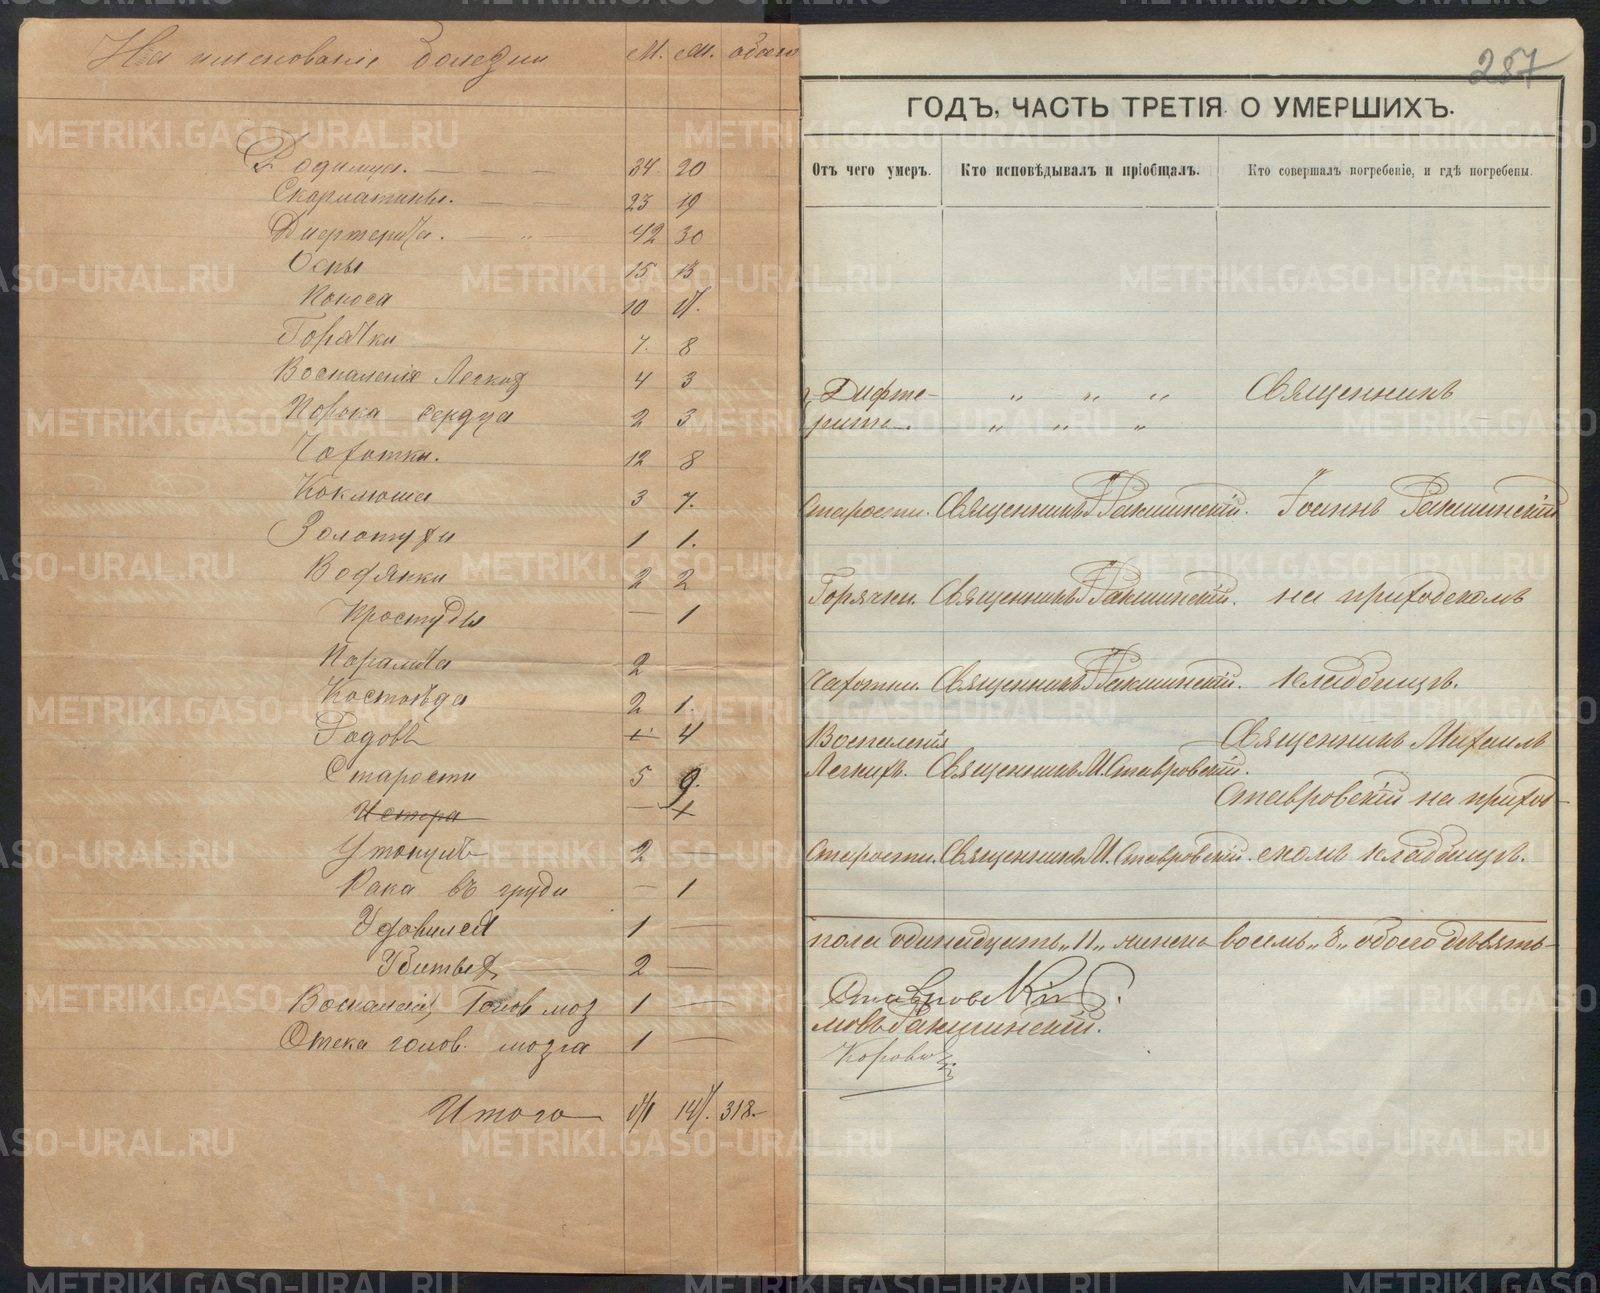 Наименованіе болезни М. М. обоего
Родимца. 34 20
Скорлатины. 23 19
Дифтерита. 42 30
Оспы 15 13
Поноса 10 17.
Горячки 7. 8
Воспаленія Легких 4 3
Порока сердца 2 3
Чахотки. 12 8
Коклюша 3 7.
Золотухи 1 1.
Водянки 2 2
Простуды — 1
Паралича 2
Костоѣда 2 1.
Родовъ 4
Старости 5 9.
Утонулъ 2 —
Рака въ груди — 1
Удавился 1 —
Убитыхъ 2 —
Воспаленія Голов моз 1 —
Отека голов. мозга 1 —
Итого 171 147. 318
287
ГОДЪ, ЧАСТЬ ТРЕТІЯ О УМЕРШИХЪ.
Отъ чего умеръ. Кто исповѣдывалъ и пріобщалъ. Кто совершалъ погребеніе, и гдѣ погребены.
Дифте- " " " Священникъ
рита. " " "
Старости. Священникъ І Ракшинскій. Іоаннъ Ракшинскій
Горячки. Священникъ І Ракшинскій. на приходскомъ
Чахотки. Священникъ І Ракшинскій. кладбищѣ.
Воспаленія Священникъ Михаилъ
Легкихъ. Священникъ М. Ставровскій.
Ставровскій на приход-
Старости. Священникъ М. Ставровскій. скомъ кладбищѣ.
пола одинадцать „11„ женска восемь „8„ обоего девять-
Ставровскій.
Ракшинскій.
METRIKI.GASO-URAL.RU